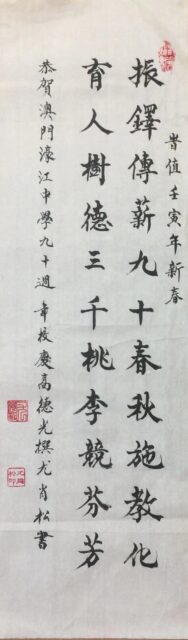 岁值壬寅年新春
振鐸傳薪九十春秋施教化
育人樹德三千桃李競芬芳
恭賀澳門濠江中學九十週年校慶高德光撰尤肖松書